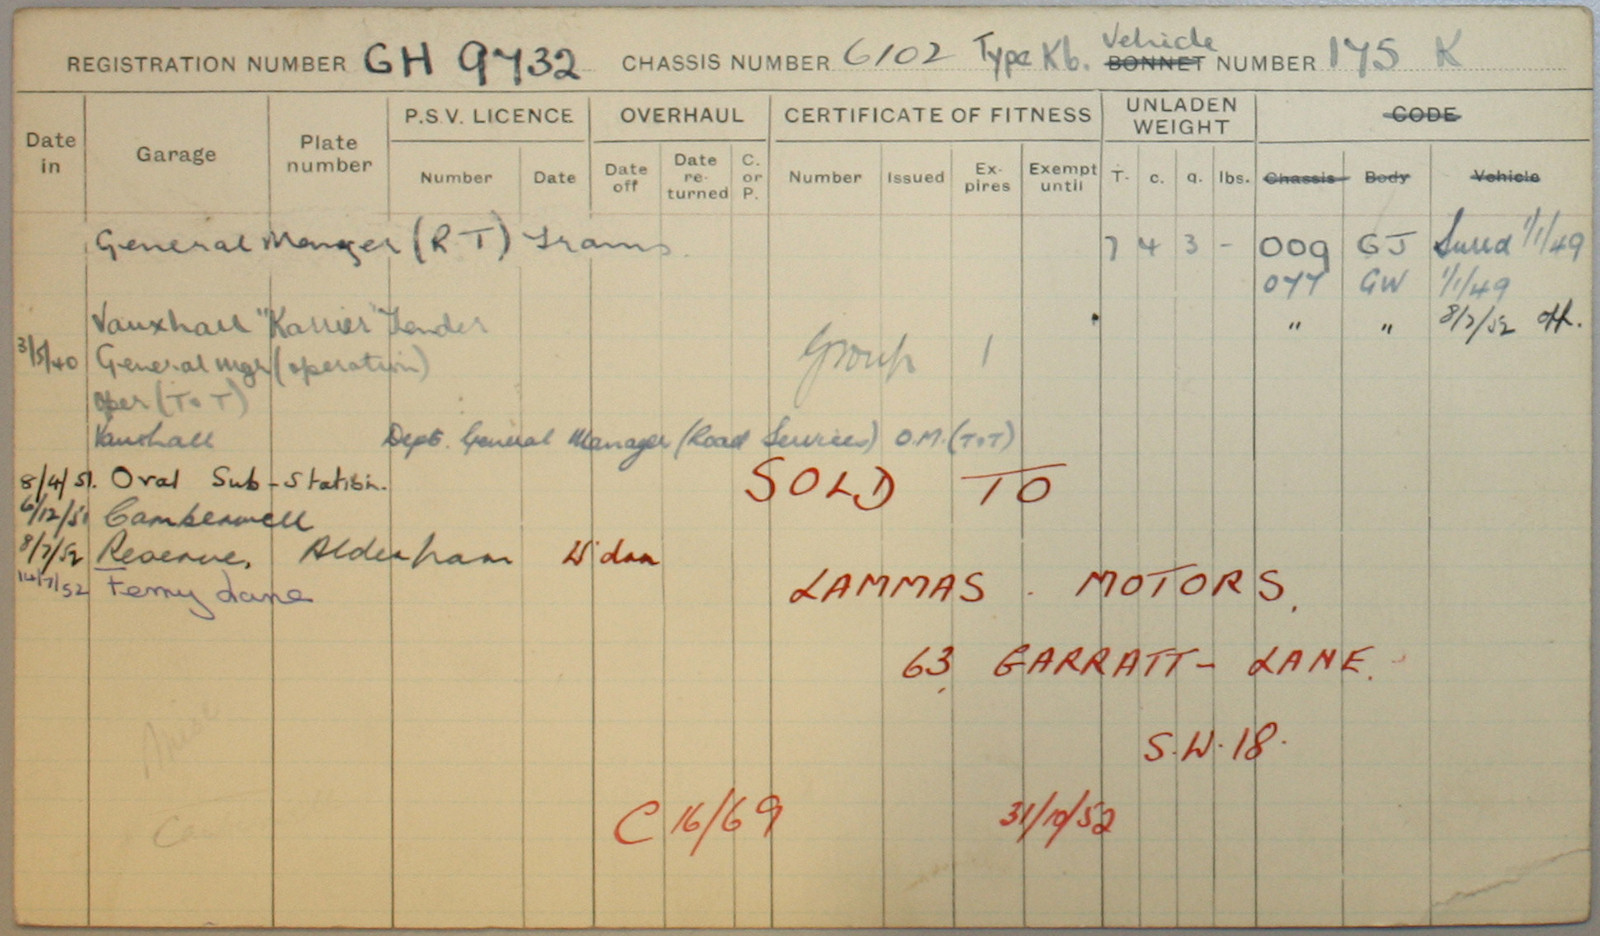 REGISTRATION NUMBER GH 9732 CHASSIS NUMBER 6102 Type K6. Vehicle BONNET NUMBER 175 K
Date in Garage Plate number P.S.V. LICENCE OVERHAUL CERTIFICATE OF FITNESS UNLADEN WEIGHT CODE
Number Date Date off Date re-turned C. or P. Number Issued Ex-pires Exempt until T. c. q. lbs. Chassis Body Vehicle
General Manager (R T) Trams. 7 4 3 - 009 GJ 1/1/49
077 GW 1/1/49
Vauxhall "Karrier" Tender " " 8/7/52 off.
3/5/40 General mgr (operation) Group 1
oper (T & T)
Vauxhall Dept. General Manager (Road Services) O.M. (T&T)
8/4/51. Oval Sub-Station.
SOLD TO
6/12/51 Camberwell
8/7/52 Reserve, Aldenham W'dn
14/7/52 Ferny Lane
LAMMAS. MOTORS.
63 GARRATT - LANE.
Misc
S.W. 18.
C 16/69 31/10/52